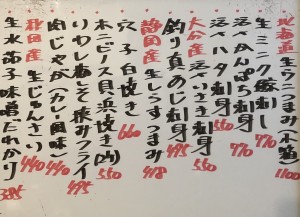 北海道産 生ウニつまみ(小箱) 1100
生ミンク鯨刺し 770
活〆かんぱち刺身 770
活〆ハタ刺身 550
大分産 活〆いさき刺身 550
釣り真あじ刺身 495
静岡産 生しらすつまみ 418
穴子白焼き 660
本ニビノス貝浜焼き(4ケ) 550
いわし梅しそ挟みフライ 495
肉じゃが(カレー風味) 440
秋田産 生じゅんさい 440
生水茄子 味噌だれかけ 385